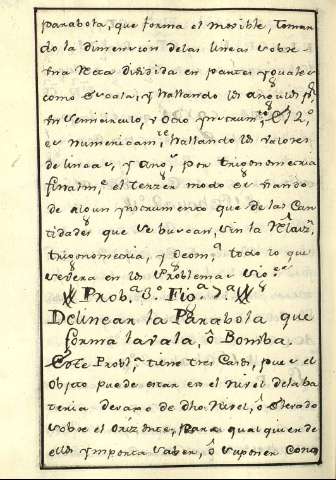 parabola, que forma el movible, toman
do la dimension de las lineas sobre
una Recta dividida en partes yguales
como Escala, y hallando los angulos pr.
un semicirculo, u otro ynstrumto. El 2.º
es numericamte. hallando los valores
de lineas, y angs. por trigonometria
finalmte. el terzer modo es usando
de algun ynstrumento que de las Can
tidades que se buscan, sin la
trigonometria, y Geoma. todo lo que
se vera en los Problemas
Prob.ª 8.º Fig.ª 7.ª
Delinear la Parabola que
forma la vala, ô Bomba.
Este Probl.ª tiene tres Casos, pues el
objeto puede estar en el nivel de la ba
teria devajo de dho. Nivel, ô elevado
sobre el Orizonte, para qualquien de
ellos ymporta saber, ô suponer cono